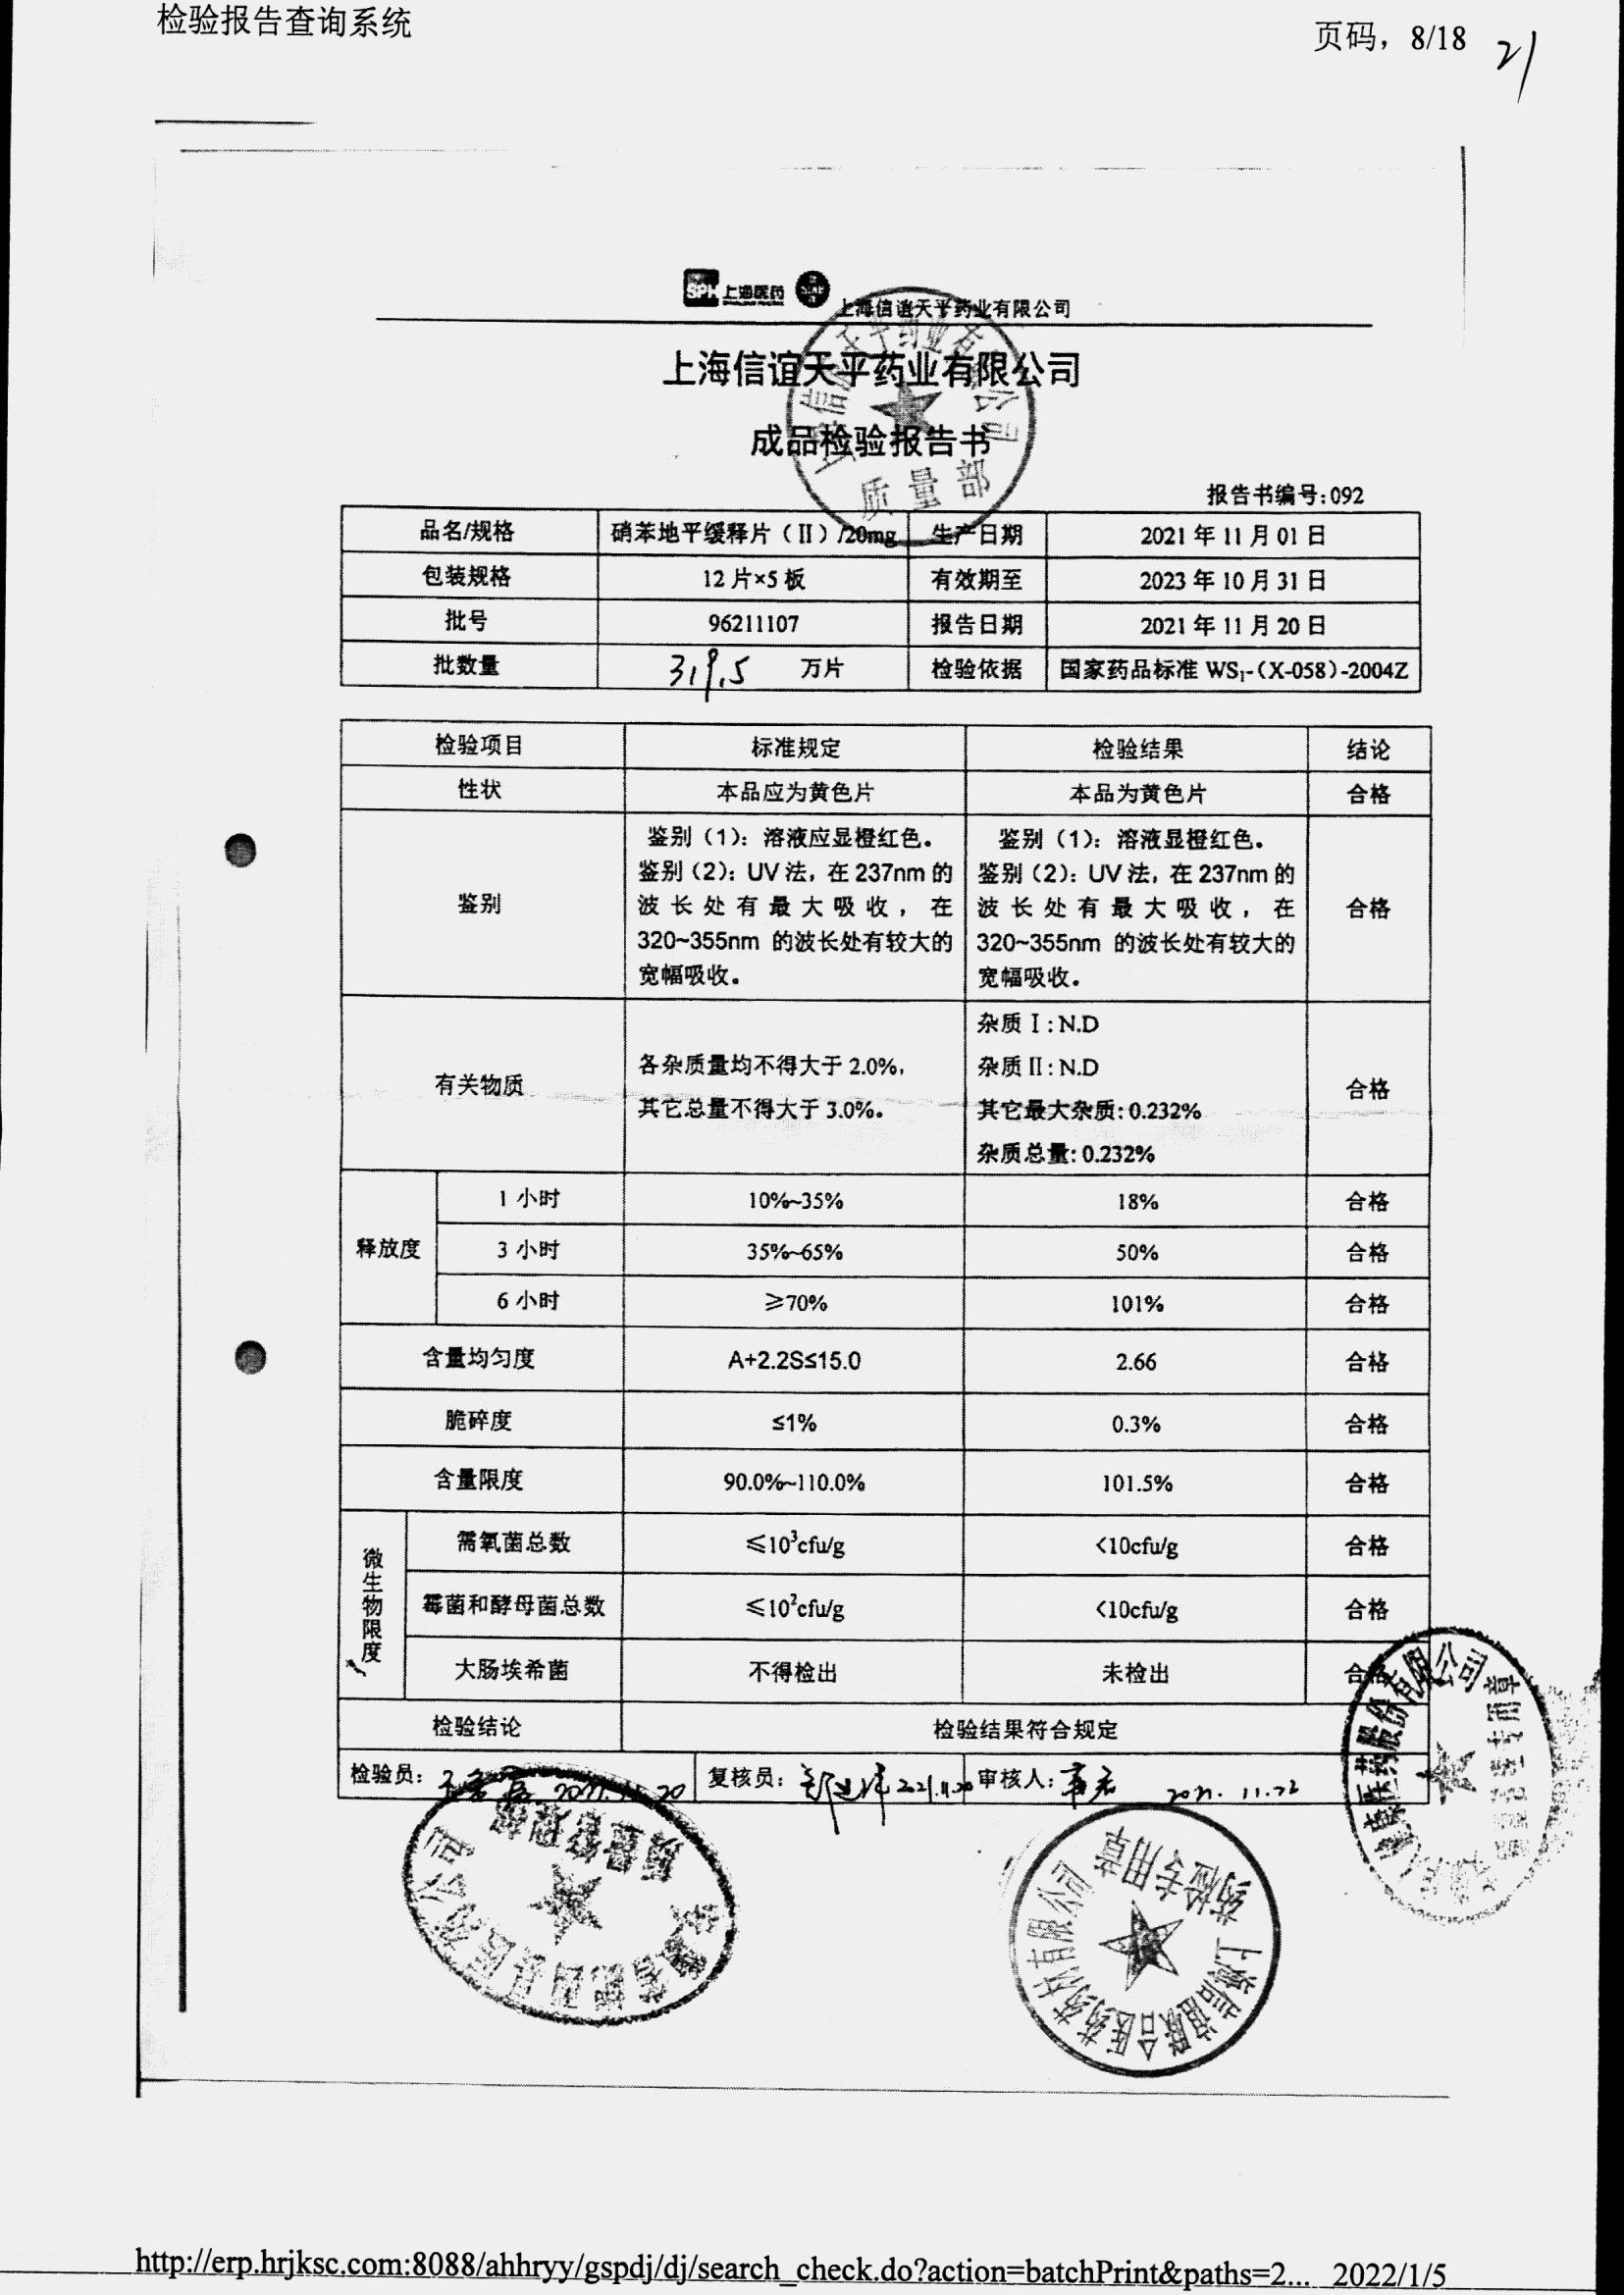 检验报告查询系统
页码，8/18
21
SPH 上海医药
上海信谊天平药业有限公司
上海信谊天平药业有限公司
成品检验报告书
质量部
报告书编号:092
品名/规格 硝苯地平缓释片（Ⅱ）/20mg 生产日期 2021 年 11 月 01 日
包装规格 12 片×5 板 有效期至 2023 年 10 月 31 日
批号 96211107 报告日期 2021 年 11 月 20 日
批数量 319.5 万片 检验依据 国家药品标准 WS₁-（X-058）-2004Z
检验项目 标准规定 检验结果 结论
性状 本品应为黄色片 本品为黄色片 合格
鉴别
鉴别（1）：溶液应显橙红色。
鉴别（2）：UV 法，在 237nm 的
波长处有最大吸收，在
320~355nm 的波长处有较大的
宽幅吸收。
鉴别（1）：溶液显橙红色。
鉴别（2）：UV 法，在 237nm 的
波长处有最大吸收，在
320~355nm 的波长处有较大的
宽幅吸收。
合格
有关物质
各杂质量均不得大于 2.0%，
其它总量不得大于 3.0%。
杂质Ⅰ: N.D
杂质Ⅱ: N.D
其它最大杂质: 0.232%
杂质总量: 0.232%
合格
释放度
1 小时 10%~35% 18% 合格
3 小时 35%~65% 50% 合格
6 小时 ≥70% 101% 合格
含量均匀度 A+2.2S≤15.0 2.66 合格
脆碎度 ≤1% 0.3% 合格
含量限度 90.0%~110.0% 101.5% 合格
微生物限度
需氧菌总数 ≤10³cfu/g <10cfu/g 合格
霉菌和酵母菌总数 ≤10²cfu/g <10cfu/g 合格
大肠埃希菌 不得检出 未检出 合格
检验结论 检验结果符合规定
检验员： 复核员： 2021.11.20 审核人： 2021.11.22
上海信谊联合医药药材有限公司
药检专用章
http://erp.hrjksc.com:8088/ahhryy/gspdj/dj/search_check.do?action=batchPrint&paths=2... 2022/1/5